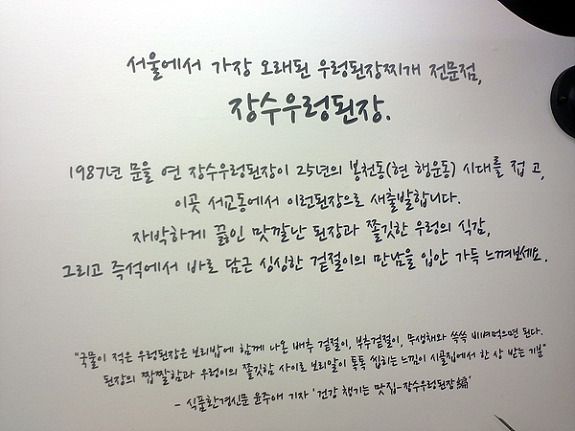 서울에서 가장 오래된 우렁된장찌개 전문점,
장수우렁된장.
1987년 문을 연 장수우렁된장이 25년의 봉천동(현 행운동) 시대를 접 고,
이곳 서교동에서 이런된장으로 새출발합니다.
자박하게 끓인 맛깔난 된장과 쫄깃한 우렁의 식감,
그리고 즉석에서 바로 담근 싱싱한 겉절이의 만남을 입안 가득 느껴보세요.
"국물이 적은 우렁된장은 보리밥에 함께 나온 배추 겉절이, 부추겉절이, 무생채와 쓱쓱 비벼먹으면 된다.
된장의 짭짤함과 우렁이의 쫄깃함 사이로 보리알이 톡톡 씹히는 느낌이 시골집에서 한 상 받는 기분"
- 식품환경신문 윤주애 기자 '건강 챙기는 맛집-장수우렁된장編'